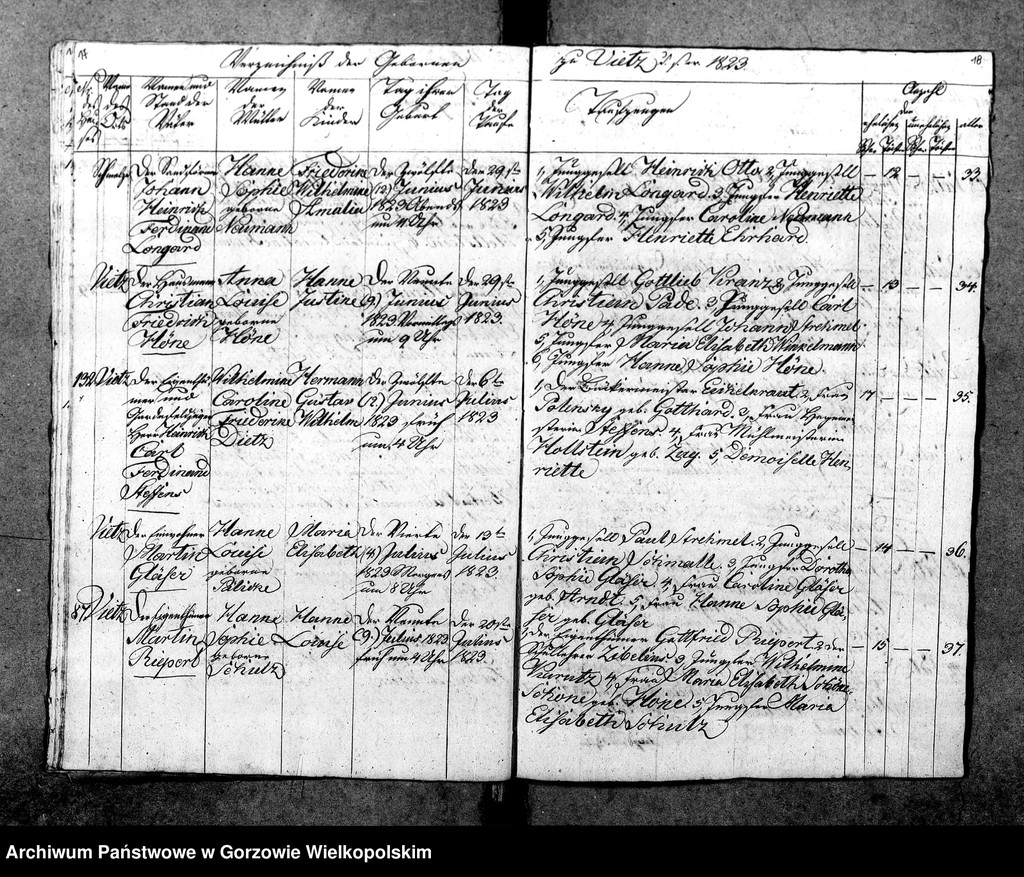 17
Verzeichniß der Geborenen
zu Vietz pro 1823.
18
Namen und
Stand der
Väter
Namen
der
Mütter
Namen
der
Kinder
Tag ihrer
Geburt
Tag
der
Taufe
Taufzeugen
Anzahl
der
ehelichen
unehelichen
aller
Johann
Heinrich
Ferdinand
Longard
Hanne
Sophie
geborne
Neumann
Friederike
Wilhelmine
Amalia
der Zwölfte
(12) Junius
1823 Abends
um 4 Uhr
Der 29ste
Junius
1823
1, Junggesell Heinrich Otto 2, Junggesell
Wilhelm Longard. 3, Jungfer Henriette
Longard. 4, Jungfer Caroline Neumann
5, Jungfer Henriette Ehrhard.
— 12 — — 33.
Vietz
Christian
Friedrich
Höne
Anna
Louise
geborne
Höne
Hanne
Justine
der Neunte
(9.) Junius
1823 Vormittags
um 9 Uhr
Der 29ste
Junius
1823.
1, Junggesell Gottlieb Kranz 2, Junggesell
Christian Pade. 3, Junggesell Carl
Höne 4, Junggesell Johann Strehmel
5, Jungfer Maria Elisabeth Winkelmann
6, Jungfer Hanne Sophie Höne.
— 13 — — 34.
132 Vietz
der Eigenthü
mer und
Herr Heinrich
Carl
Ferdinand
Steffens
Wilhelmine
Caroline
Friederike
Dietz
Hermann
Gustav
Wilhelm
der Zwölfte
(12.) Junius
1823 früh
um 4 Uhr
Der 6te
Julius
1823
Polensky geb. Gotthard. 3, Frau Hegeme
sterin Steffens. 4, Frau Mühlmeisterin
Hollstein geb. Zag. 5, Demoiselle Hen,
riette
17 — — — 35.
Vietz
der Einwohner
Martin
Gläser
Hanne
Louise
geborne
Pälicke
Maria
Elisabeth
der Vierte
(4.) Julius
1823 Morgens
um 8 Uhr
Der 13te
Julius
1823.
1, Junggesell Paul Strehmel 2, Junggesell
Christian Schmalle. 3, Jungfer Dorothe
Sophie Gläser. 4, Frau Caroline Gläser
geb. Arndt. 5, Frau Hanne Sophie Glä,
ser geb. Gläser
— 14 — — 36.
87 Vietz
der Eigenthümer
Martin
Riepert
Hanne
Sophie
geborne
Schulz
Hanne
Louise
der Neunte
(9.) Julius 1823
früh um 4 Uhr
der 20ste
Julius
1823.
1, der Eigenthümer Gottfried Riepert 2, der
Schullehrer Zibelius 3, Jungfer Wilhelmine
4, Frau Maria Elisabeth Schöne
Schöne geb. Höne. 5, Jungfer Maria
Elisabeth Schulz
— 15 — — 37.
Archiwum Państwowe w Gorzowie Wielkopolskim